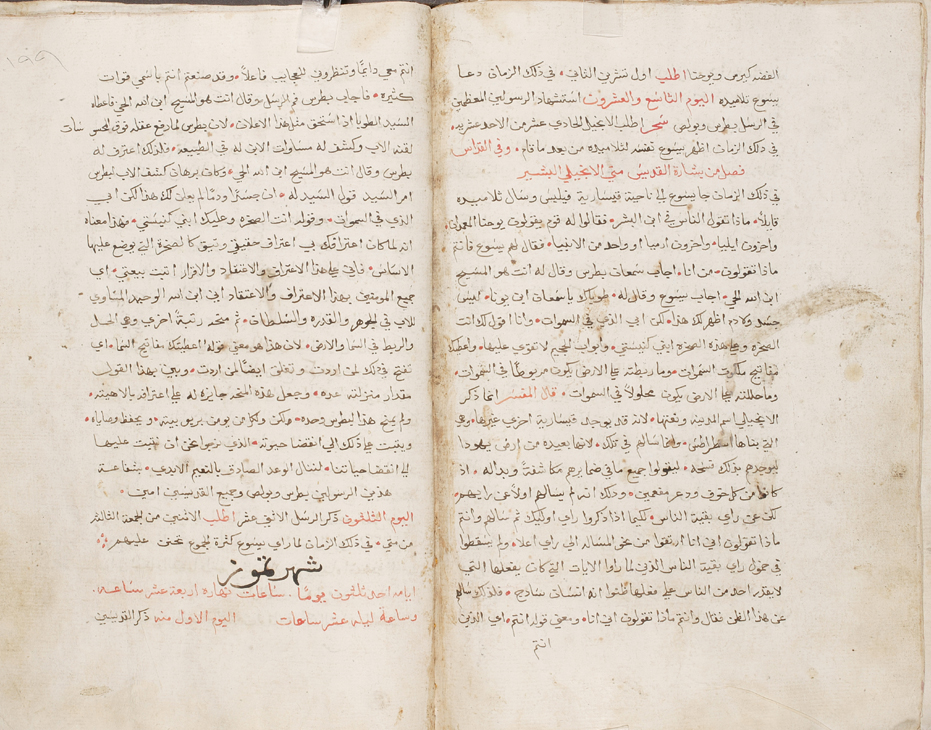 الفضه كيرس ويوحنا اطلب اول تشرين الثاني • في ذلك الزمان دعا
يسوع تلاميذه اليوم التاسع والعشرون استشهاد الرسولين المعظمين
في الرسل بطرس وبولص سحر اطلب الانجيل الحادي عشر من الاحد عشريه •
في ذلك الزمان اظهر يسوع نفسه لتلاميذه من بعد ما قام • وفي القداس
فصل من بشارة القديس متي الانجيلي البشير
في ذلك الزمان جا يسوع الى ناحية قيسارية فيلبس وسال تلاميذه
قايلاً • ماذا تقول الناس في ابن البشر • فقالوا له قوم يقولون يوحنا المعمدان
واخرون ايليا • واخرون ارميا او واحد من الانبيا • فقال لهم يسوع فانتم
ماذا تقولون • من انا • اجاب سمعان بطرس وقال له انت هو المسيح
ابن الله الحي • اجاب يسوع وقال له • طوباك يا سمعان ابن يونا • ليس
جسد ولا دم اظهر لك هذا • لكن ابي الذي في السموات • وانا اقول لك انت
الصخره وعلى هذه الصخره ابني كنيستي • وابواب الجحيم لا تقوي عليها • واعطيك
مفاتيح ملكوت السموات • وما ربطته على الارض يكون مربوطًا في السموات •
وما حللته على الارض يكون محلولاً في السموات • قال المفسر انما ذكر
الانجيلي اسم المدينه ونعتها • لانه قد يوجد قيسارية اخري غيرها • وهي
التي بناها اسطراطن • وانما سالهم في تلك • لانها بعيده من ارض يهودا
ليوجدهم بذلك فسحه • ليقولوا جميع ما في ضمايرهم مكاشفةً وبداله • اذ
كانوا من كل خوف وذعر معفيين • وذلك انه لم يسالهم اولاً عن رايهم •
لكن عن راي بقية الناس • لكيما اذا ذكروا راي اوليك ثم سالهم وانتم
ماذا تقولون اني انا ارتقوا من نحو المساله الي راي اعلا • ولم يسقطوا
في خمول راي بقية الناس الذين لما راوا الايات التي كان يفعلها التي
لا يقدر احد من الناس على فعلها ظنوا انه انسان سادج • فلذلك سالهم
عن هذا الظن فقال وانتم ماذا تقولون اني انا • ومعني قوله انتم • اي الذين
انتم
انتم معي دايمًا وتنظروني للعجايب فاعلاً • وقد صنعتم انتم باسمي قوات
كثيره • فاجاب بطرس فم الرسل وقال انت هو المسيح ابن الله الحي فاعطاه
السيد الطوبا اذ استحق مثل هذا الاعلان • لان بطرس لما رفع عقله فوق المحسوسات
لقنه الاب وكشف له مساوات الابن له في الطبيعه • فلذلك اعترف له
بطرس وقال انت هو المسيح ابن الله الحي • وكان برهان كشف الاب لبطرس
امر السيد قول السيد له • ان جسدًا ودمًا لم يعلن لك هذا لكن ابي
الذي في السموات • وقوله انت الصخره وعليك ابني كنيستي • فهذا معناه
انه لما كان اعترافك بي اعتراف حقيقي وثيق كالصخرة التي يوضع عليها
الاساس • فاني على هذا الاعتراف والاعتقاد والاقرار اثبت بيعتي • اي
جميع المومنين بهذا الاعتراف والاعتقاد اني ابن الله الوحيد المساوي
للاب في الجوهر والقدره والسلطان • ثم منحه رتبةً اخري وهي الحل
والربط في السما والارض • لان هذا هو معني قوله اعطيتك مفاتيح السما • اي
تفتح في ذلك لمن اردت وتغلق ايضًا لمن اردت • وبين بهذا القول
مقدار منزلته عنده • وجعل هذه المنحه جايزة له على اعترافه بالاهيته •
ولم يمنح هذا لبطرس وحده • ولكن ولكل من يومن بربوبيته • ويحفظ وصاياه •
ويثبت على ذلك الي انقضا حيوته • الذي نرجوا نحن ان نثبت عليها
الى انقضا حياتنا • لننال الوعد الصادق بالنعيم الابدي • بشفاعة
هذين الرسولين بطرس وبولص وجميع القديسين امين •
اليوم الثلثون ذكر الرسل الاثني عشر اطلب الاثنين من الجمعة الثالثه
من متي • في ذلك الزمان لما راي يسوع كثرة الجموع تحنن عليهم
شهر تموز
ايامه احد ثلثون يومًا • ساعات نهاره اربعة عشر ساعه •
وساعة ليله عشر ساعات اليوم الاول منه ذكر القديسين